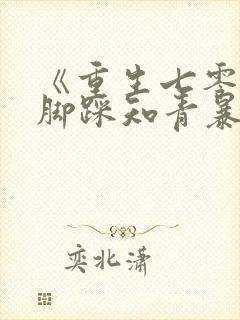 《重生七零
脚踩知青暴
奕北潇